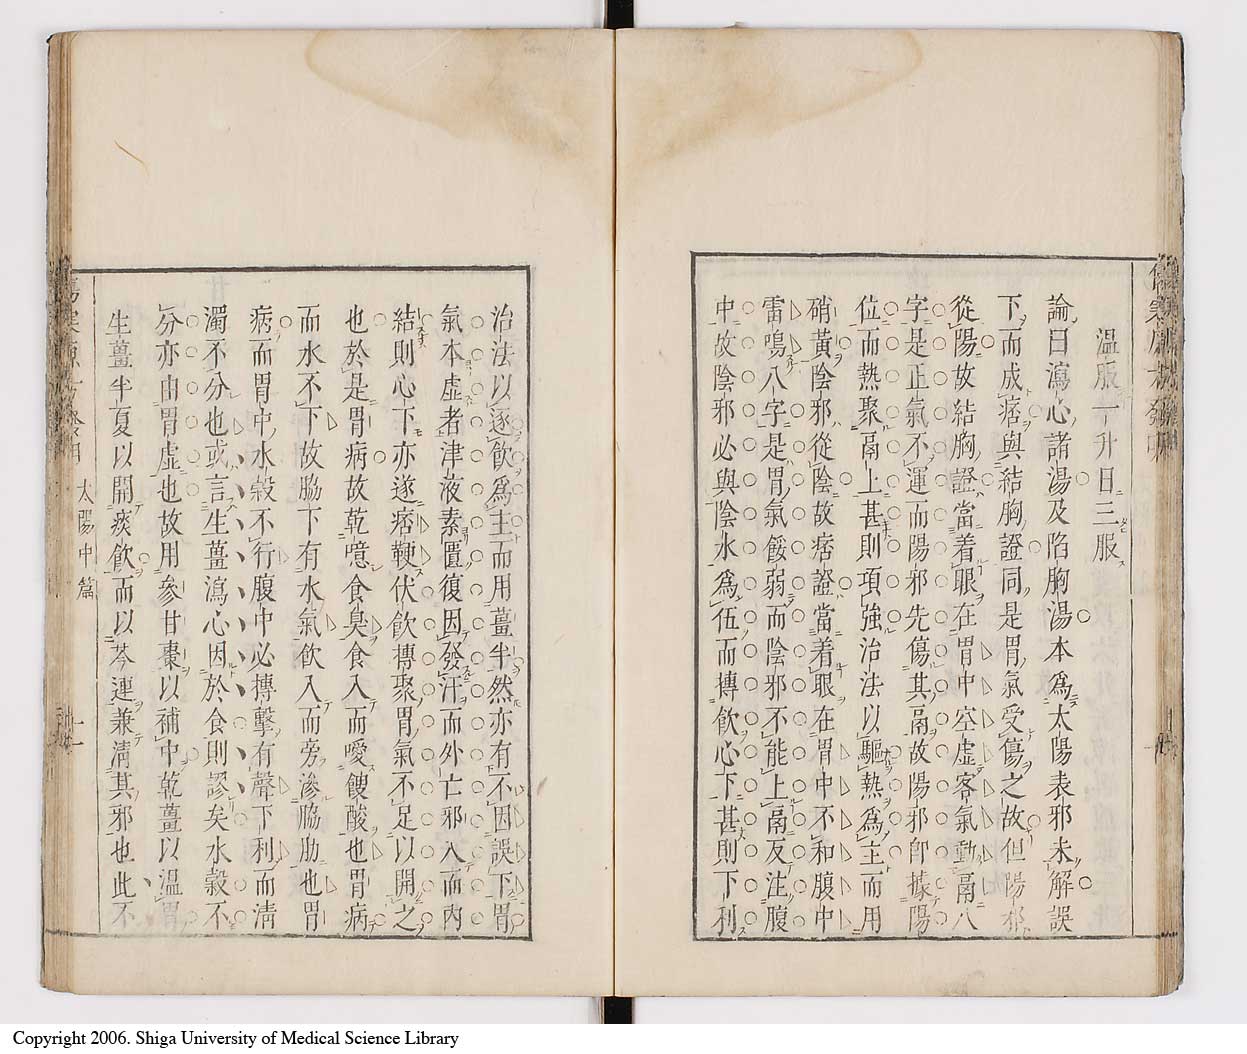 温服一升日三服
論曰瀉心諸湯及陷胸湯本爲太陽表邪未解誤
下而成痞與結胸證同是胃氣受傷之故但陽邪
從陽故結胸證當着眼在胃中空虛客氣動鬲八
字是正氣不運而陽邪先傷其鬲故陽邪卽據陽
位而熱聚鬲上甚則項強治法以驅熱爲主而用
硝黃陰邪從陰故痞證當着眼在胃中不和腹中
雷鳴八字是胃氣餒弱而陰邪不能上鬲反注腹
中故陰邪必與陰水爲伍而摶飮心下甚則下利
治法以逐飮爲主而用薑半然亦有不因誤下胃
氣本虛者津液素匱復因發汗而外亡邪入而內
結則心下亦遂痞鞕伏飮摶聚胃氣不足以開之
也於是胃病故乾噫食臭食入而噯餿酸也胃病
而水不下故脇下有水氣飮入而旁滲脇肋也胃
病而胃中水穀不行腹中必摶擊有聲下利而淸
濁不分也或言生薑瀉心因於食則謬矣水穀不
分亦由胃虛也故用參甘棗以補中乾薑以溫胃
生薑半夏以開痰飮而以芩連兼淸其邪也此不
太陽中篇
Copyright 2006. Shiga University of Medical Science Library